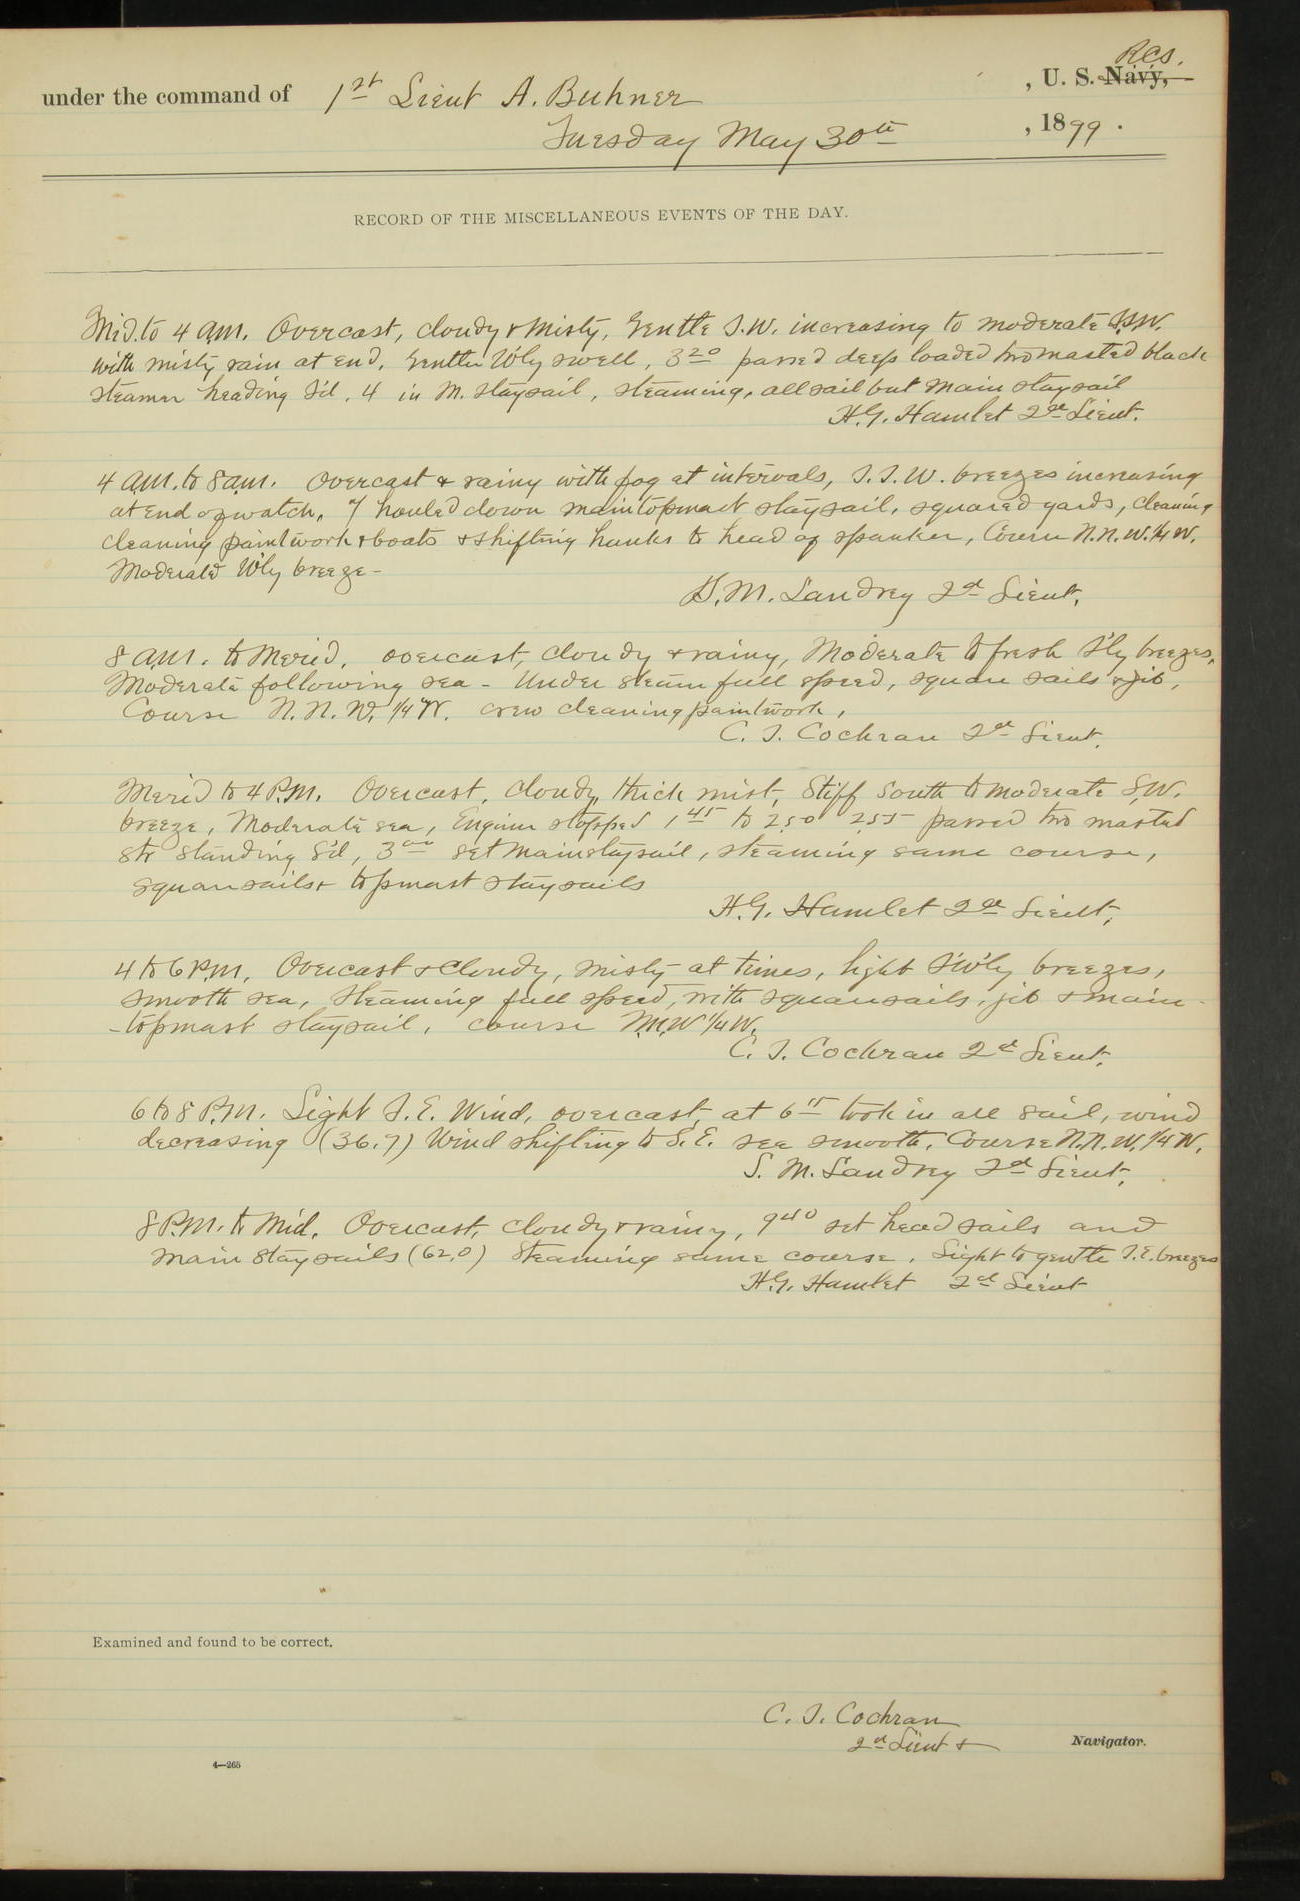 R.C.S.
under the command of 1st Lieut A. Buhner , U. S. Navy,
Tuesday May 30th , 1899 .
RECORD OF THE MISCELLANEOUS EVENTS OF THE DAY.
Mid. to 4 a.m. Overcast, cloudy & misty, Gentle S.W. increasing to moderate S.S.W.
with misty rain at end, Gentle W'ly swell, 3 20 passed deep loaded two masted black
steamer heading S'd, 4 in M. staysail, steaming, all sail but main staysail
H.G. Hamlet 2d Lieut.
4 a.m. to 8 a.m. Overcast & rainy with fog at intervals, S.S.W. breezes increasing
at end of watch, 7 hauled down maintopmast staysail, squared yards, cleaning
cleaning paintwork & boats & shifting hanks to head of spanker, Course N.N.W. 1/4 W.
Moderate W'ly breeze-
S. M. Landrey 2d Lieut.
8 a.m. to Merid. overcast, cloudy & rainy, Moderate to fresh S'ly breezes,
Moderate following sea - Under steam full speed, square sails & jib,
Course N. N. W. 1/4 W. crew cleaning paintwork,
C. S. Cochran 2d Lieut.
Merid to 4 P.M. Overcast, cloudy, thick mist, Stiff South to moderate S.W.
breeze, Moderate sea, Engine stopped 1 45 to 2.50 2.55 passed two masted
str standing S'd, 3 00 set mainstaysail, steaming same course,
squaresails & topmast staysails
H.G. Hamlet 2d Lieut.
4 to 6 P.M. Overcast & cloudy, misty at times, light S'W'ly breezes,
smooth sea, steaming full speed, with squaresails, jib & main-
-topmast staysail, course N.N.W 1/4 W.
C. S. Cochran 2d Lieut.
6 to 8 P.M. Light S.E. Wind, overcast, at 6 15 took in all sail, wind
decreasing (36.7) Wind shifting to S.E. sea smooth, Course N.N.W. 1/4 W.
S. M. Landrey 2d Lieut.
8 P.M. to Mid. Overcast, cloudy & rainy, 9 40 set head sails and
main staysails (62.0) Steaming same course. Light to gentle S.E. breezes
H.G. Hamlet 2d Lieut
Examined and found to be correct.
C. S. Cochran
2d Lieut & Navigator.
4—265